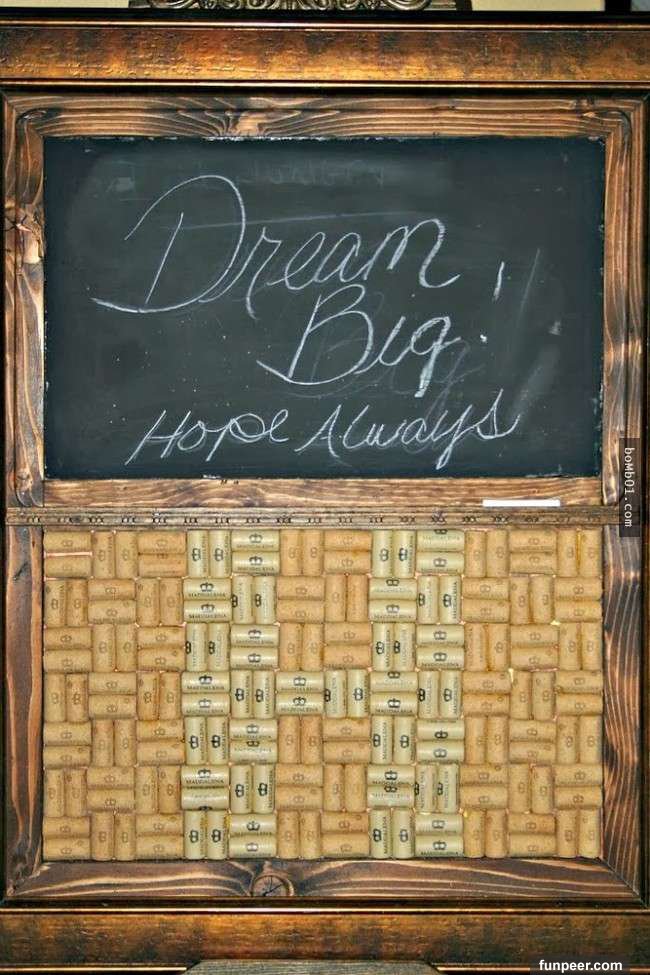 Dream
Big!
Hope Always
bomb01.com
MADDALENA
funpeer.com